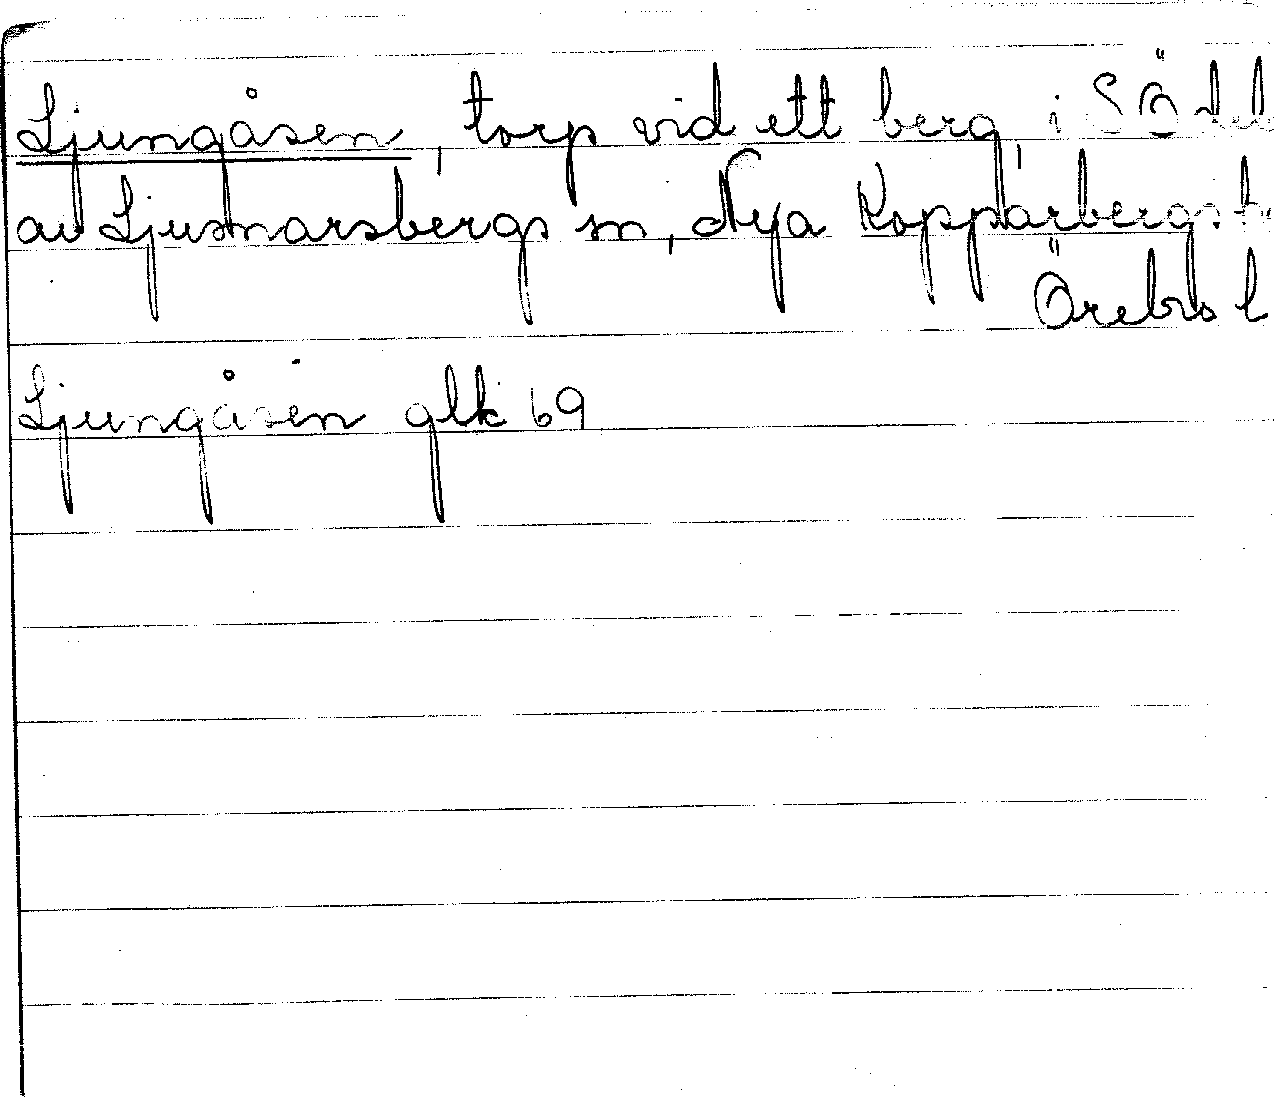 Ljungåsen, torp vid ett berg, i SÖ del
av Ljusnarsbergs sn, Nya Kopparbergs
Örebro l
Ljungåsen glk 69